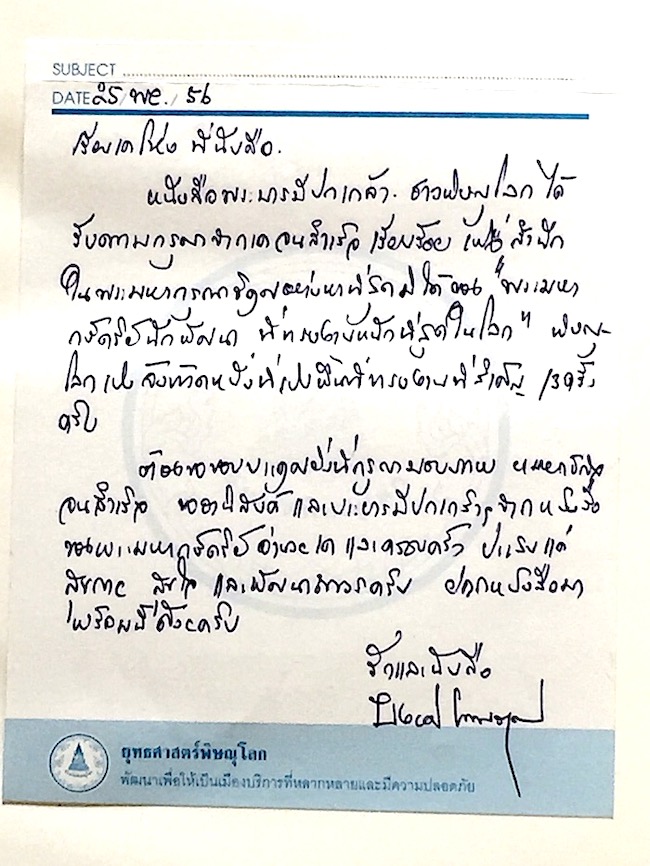 SUBJECT
DATE 25/ พย. / 56
เรียน โหน่ง ที่นับถือ.
หนังสือพระบารมีปกเกล้า ชาวพิษณุโลก ได้
รับความกรุณาจาก จนสำเร็จ เรียบร้อย สำนึก
ในพระมหากรุณาธิคุณอย่างหาที่สุดมิได้ของ "พระมหา
กษัตริย์นักพัฒนา ที่ทรงงานหนักที่สุดในโลก" พิษณุ
โลกเป็นจังหวัดหนึ่งที่เป็นพื้นที่ทรงงานที่สำคัญ 139 ครั้ง
ครับ
ต้องขอขอบพระคุณยิ่งที่กรุณามอบภาพ
จนสำเร็จ ขออานิสงส์ และพระบารมีปกเกล้าฯ จากหนังสือ
ของพระมหากษัตริย์ อำนวย และครอบครัว ประสบแต่
สุขกาย สุขใจ และพัฒนาถาวรครับ ฝากหนังสือมา
พร้อมนี้ ครับ
รักและนับถือ
ยุทธศาสตร์พิษณุโลก
พัฒนาเพื่อให้เป็นเมืองบริการที่หลากหลายและมีความปลอดภัย